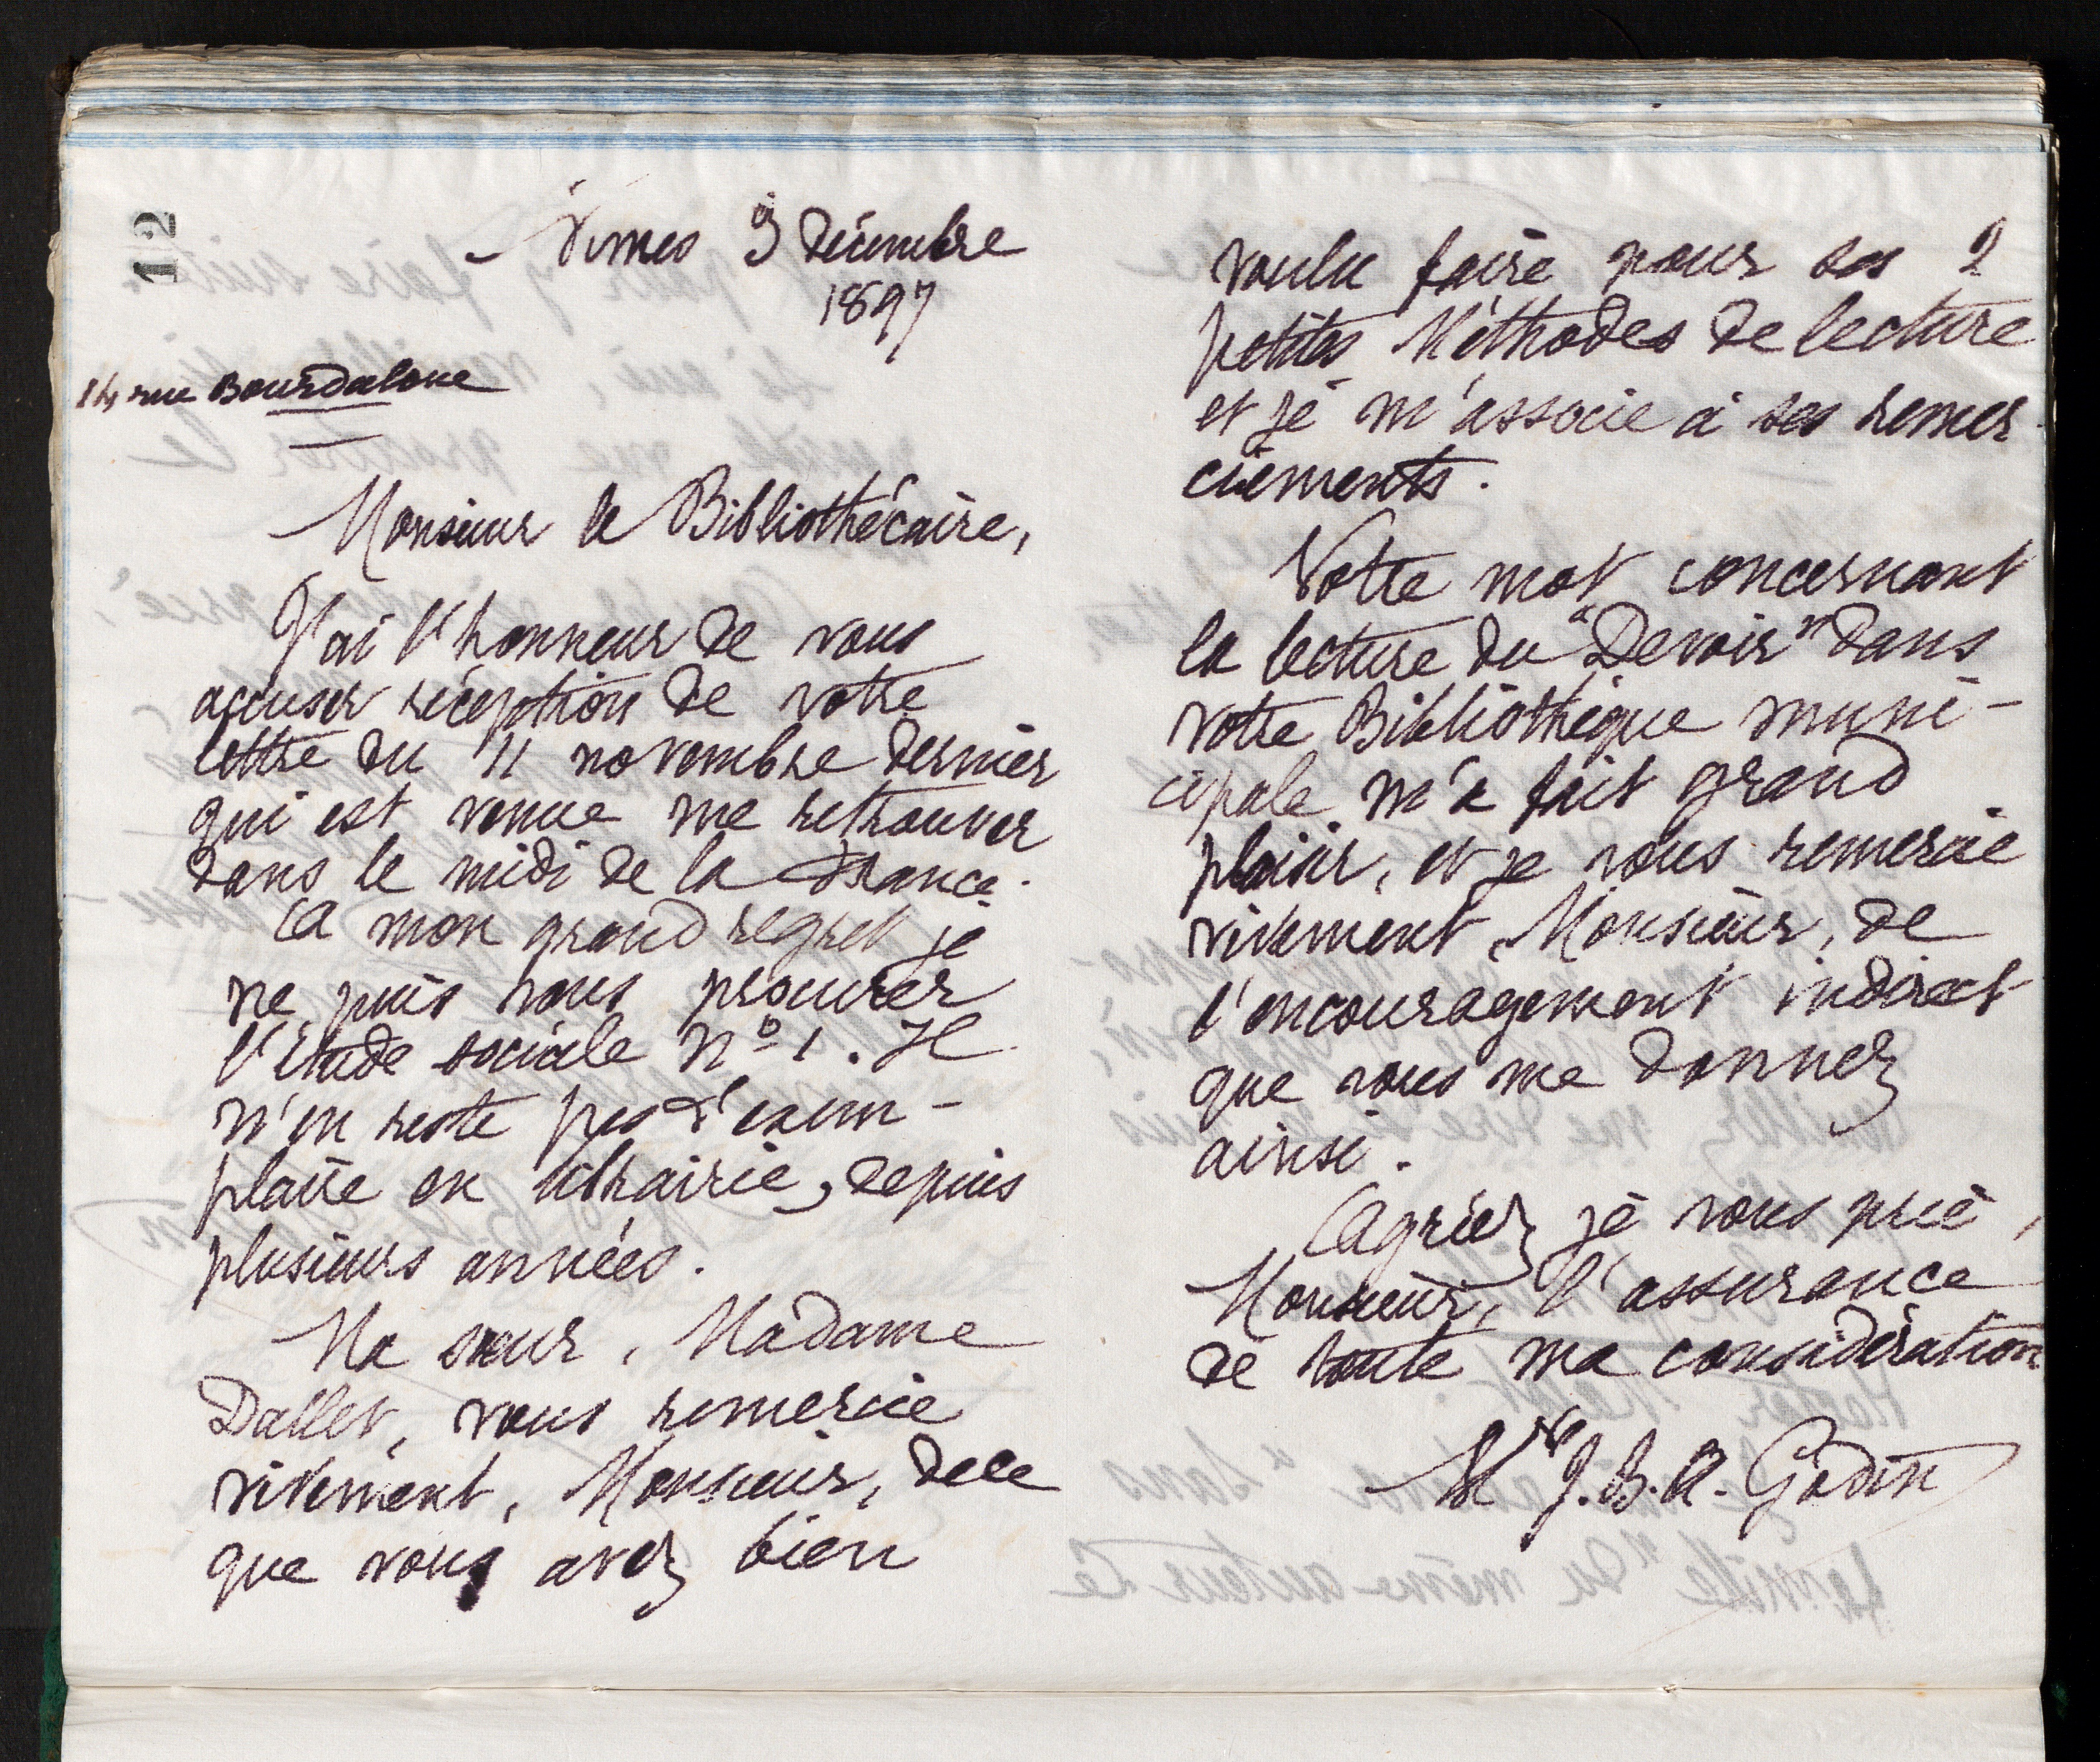 12
Nîmes 3 décembre
1897
14 rue Bourdaloue
Monsieur le Bibliothécaire,
J'ai l'honneur de vous
accuser réception de votre
lettre du 11 novembre dernier
qui est venue me retrouver
dans le midi de la France.
A mon grand regret je
ne puis vous procurer
l'étude sociale nº 1. Il
n'en reste pas d'exem-
plaire en librairie, depuis
plusieurs années.
Ma sœur, Madame
Dallet, vous remercie
vivement, Monsieur, de ce
que vous avez bien
voulu faire pour ses 2
petites Méthodes de lecture
et je m'associe à ses remer
ciements.
Votre mot concernant
la lecture du "Devoir" dans
votre Bibliothèque muni-
cipale m'a fait grand
plaisir, et je vous remercie
vivement, Monsieur, de
l'encouragement indirect
que vous me donnez
ainsi.
Agréez je vous prie,
Monsieur, l'assurance
de toute ma considération
Vve J.B.A. Godin